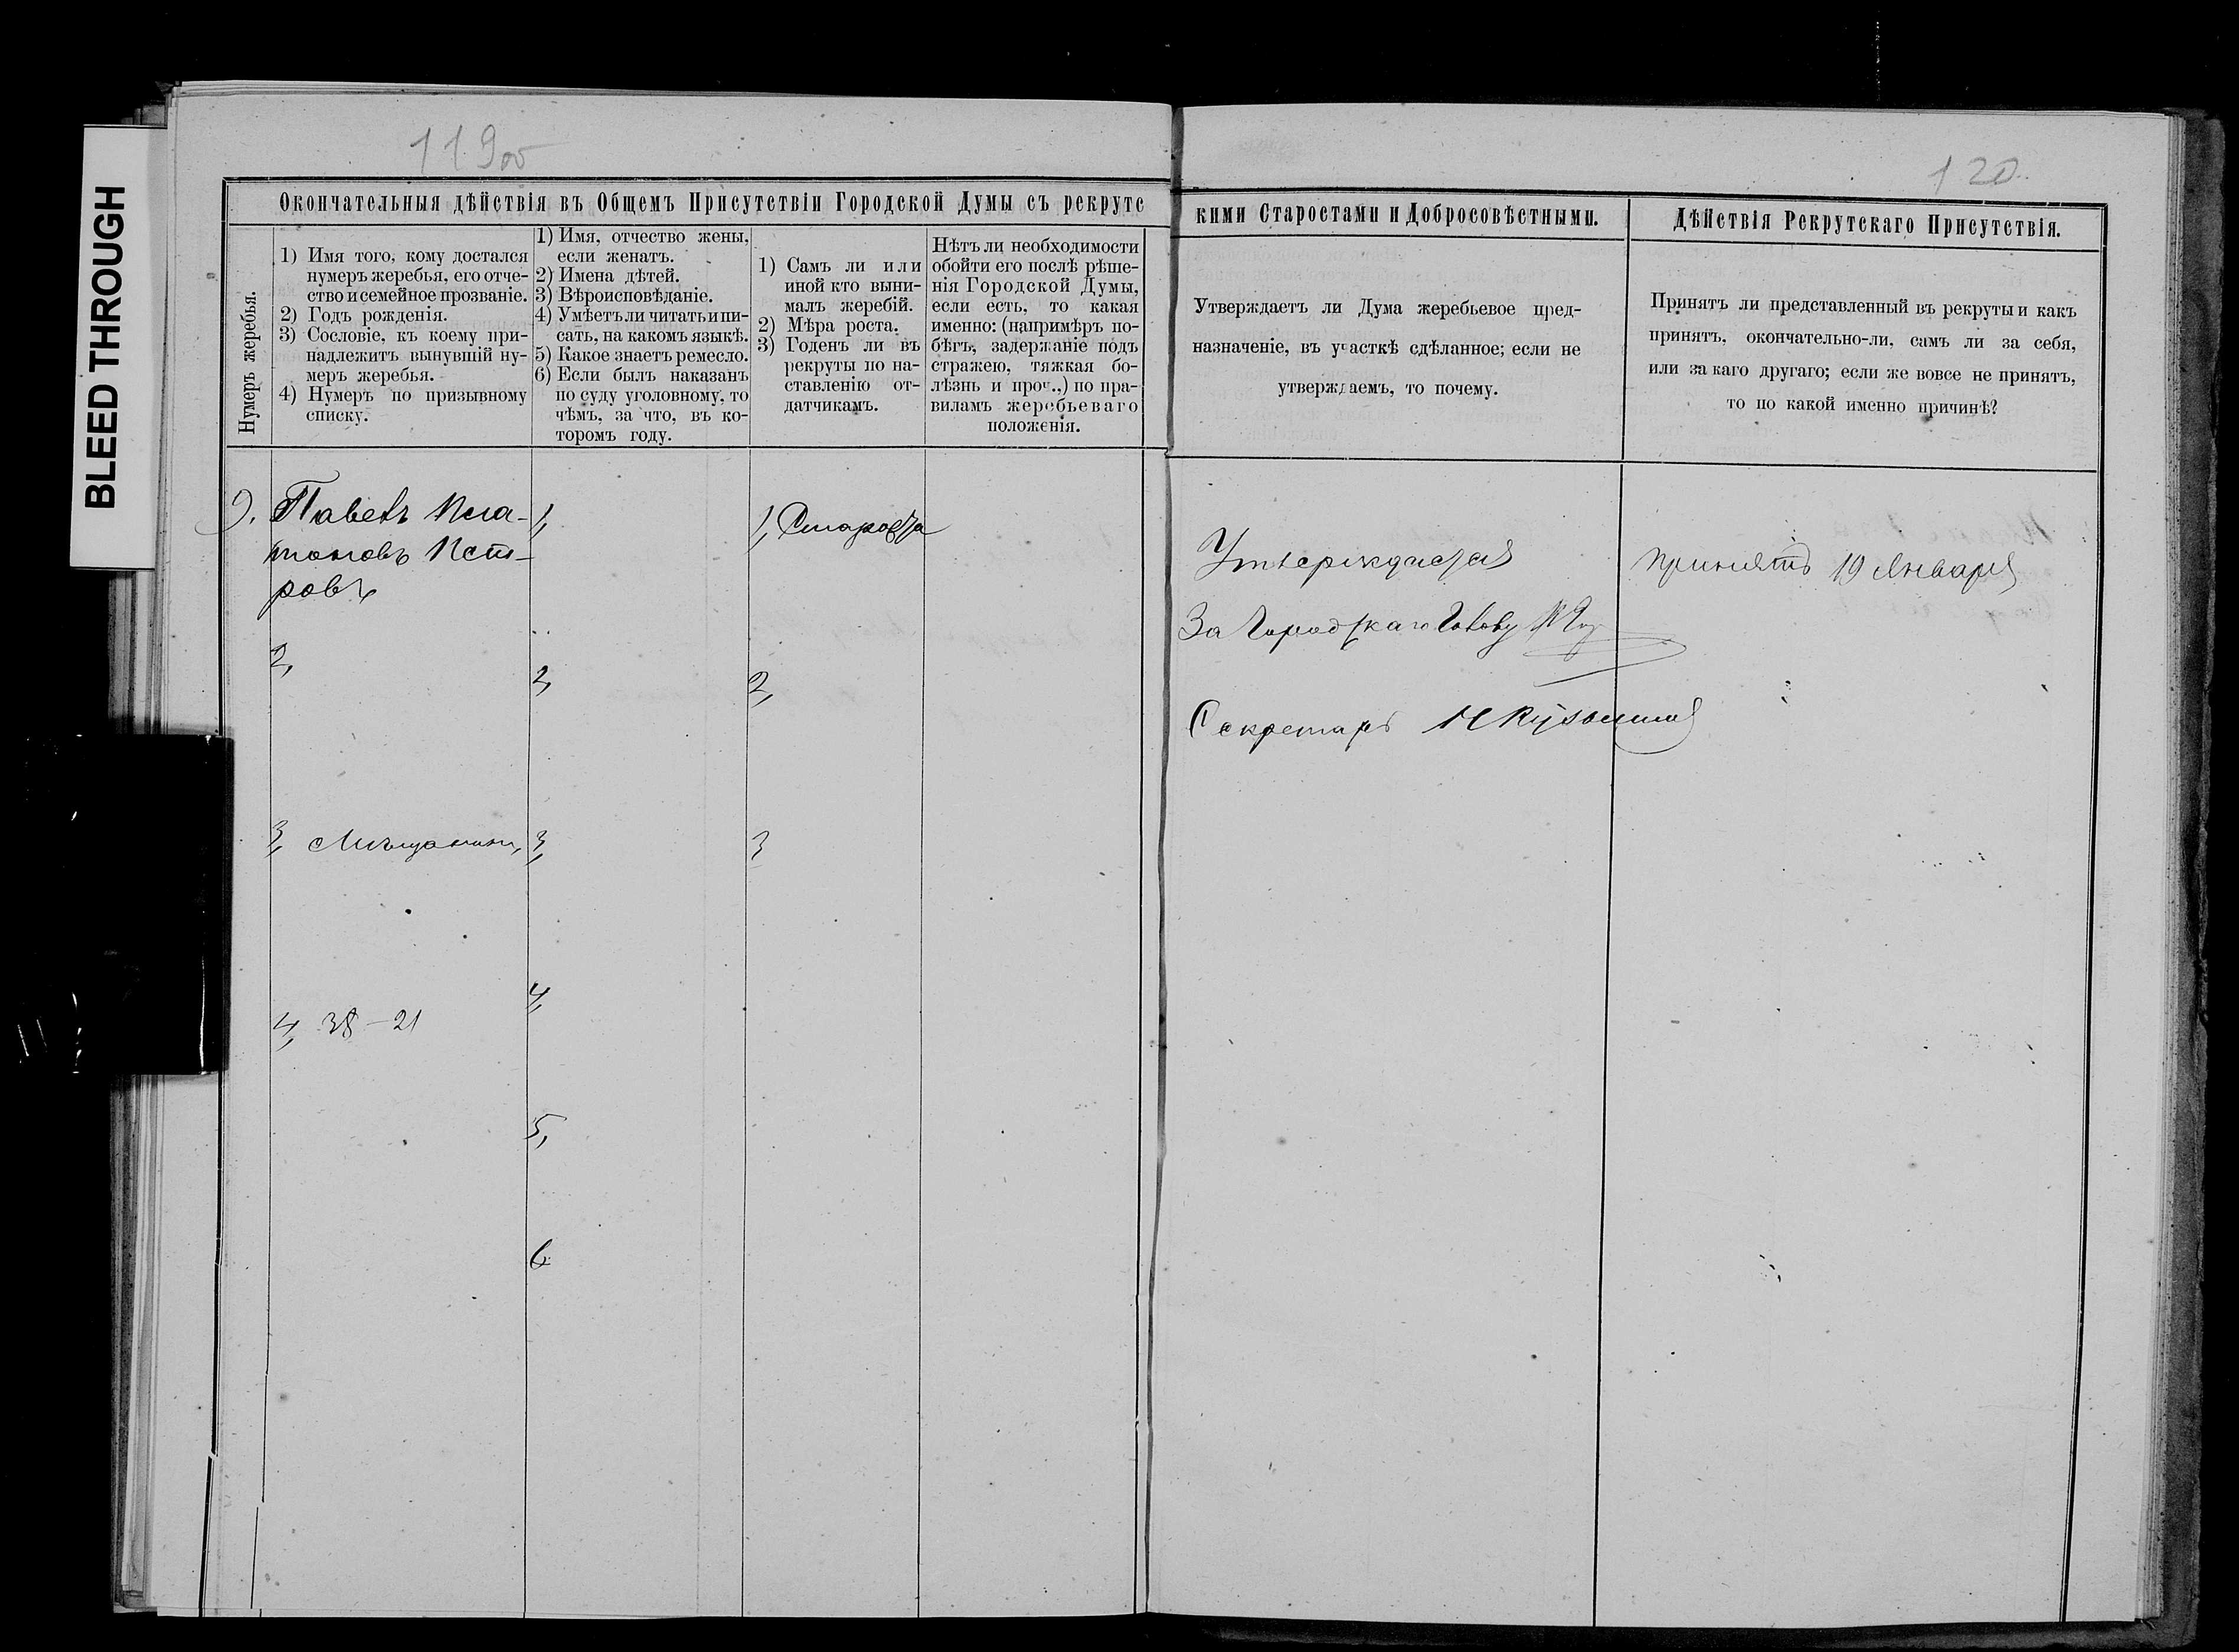 BLEED THROUGH
119об
120.
Окончательныя дѣйствія въ Общемъ Присутствіи Городской Думы съ рекрутс
кими Старостами и Добросовѣстными.
Дѣйствія Рекрутскаго Присутствія.
Нумеръ жеребья.
1) Имя того, кому достался
нумеръ жеребья, его отче-
ство и семейное прозваніе.
2) Годъ рожденія.
3) Сословіе, къ коему при-
надлежитъ вынувшій ну-
меръ жеребья.
4) Нумеръ по призывному
списку.
1) Имя, отчество жены,
если женатъ.
2) Имена дѣтей.
3) Вѣроисповѣданіе.
4) Умѣетъ ли читать и пи-
сать, на какомъ языкѣ.
5) Какое знаетъ ремесло.
6) Если былъ наказанъ
по суду уголовному, то
чѣмъ, за что, въ ко-
торомъ году.
1) Самъ ли или
иной кто выни-
малъ жеребій.
2) Мѣра роста.
3) Годенъ ли въ
рекруты по на-
ставленію от-
датчикамъ.
Нѣтъ ли необходимости
обойти его послѣ рѣше-
нія Городской Думы,
если есть, то какая
именно: (напримѣръ по-
бѣгъ, задержаніе подъ
стражею, тяжкая бо-
лѣзнь и проч.,) по пра-
виламъ жеребьеваго
положенія.
Утверждаетъ ли Дума жеребьевое пред-
назначеніе, въ участкѣ сдѣланное; если не
утверждаемъ, то почему.
Принятъ ли представленный въ рекруты и какъ
принятъ, окончательно-ли, самъ ли за себя,
или за каго другаго; если же вовсе не принятъ,
то по какой именно причинѣ?
9. Павелъ Пла-
тоновъ Пет-
ровъ
2,
3, Мѣщанинъ,
4, 38-21
1,
2,
3,
4,
5,
6
1, Староста
2,
3
Утверждается
За Городскаго Голову
Секретарь Н
принятъ 19 Января